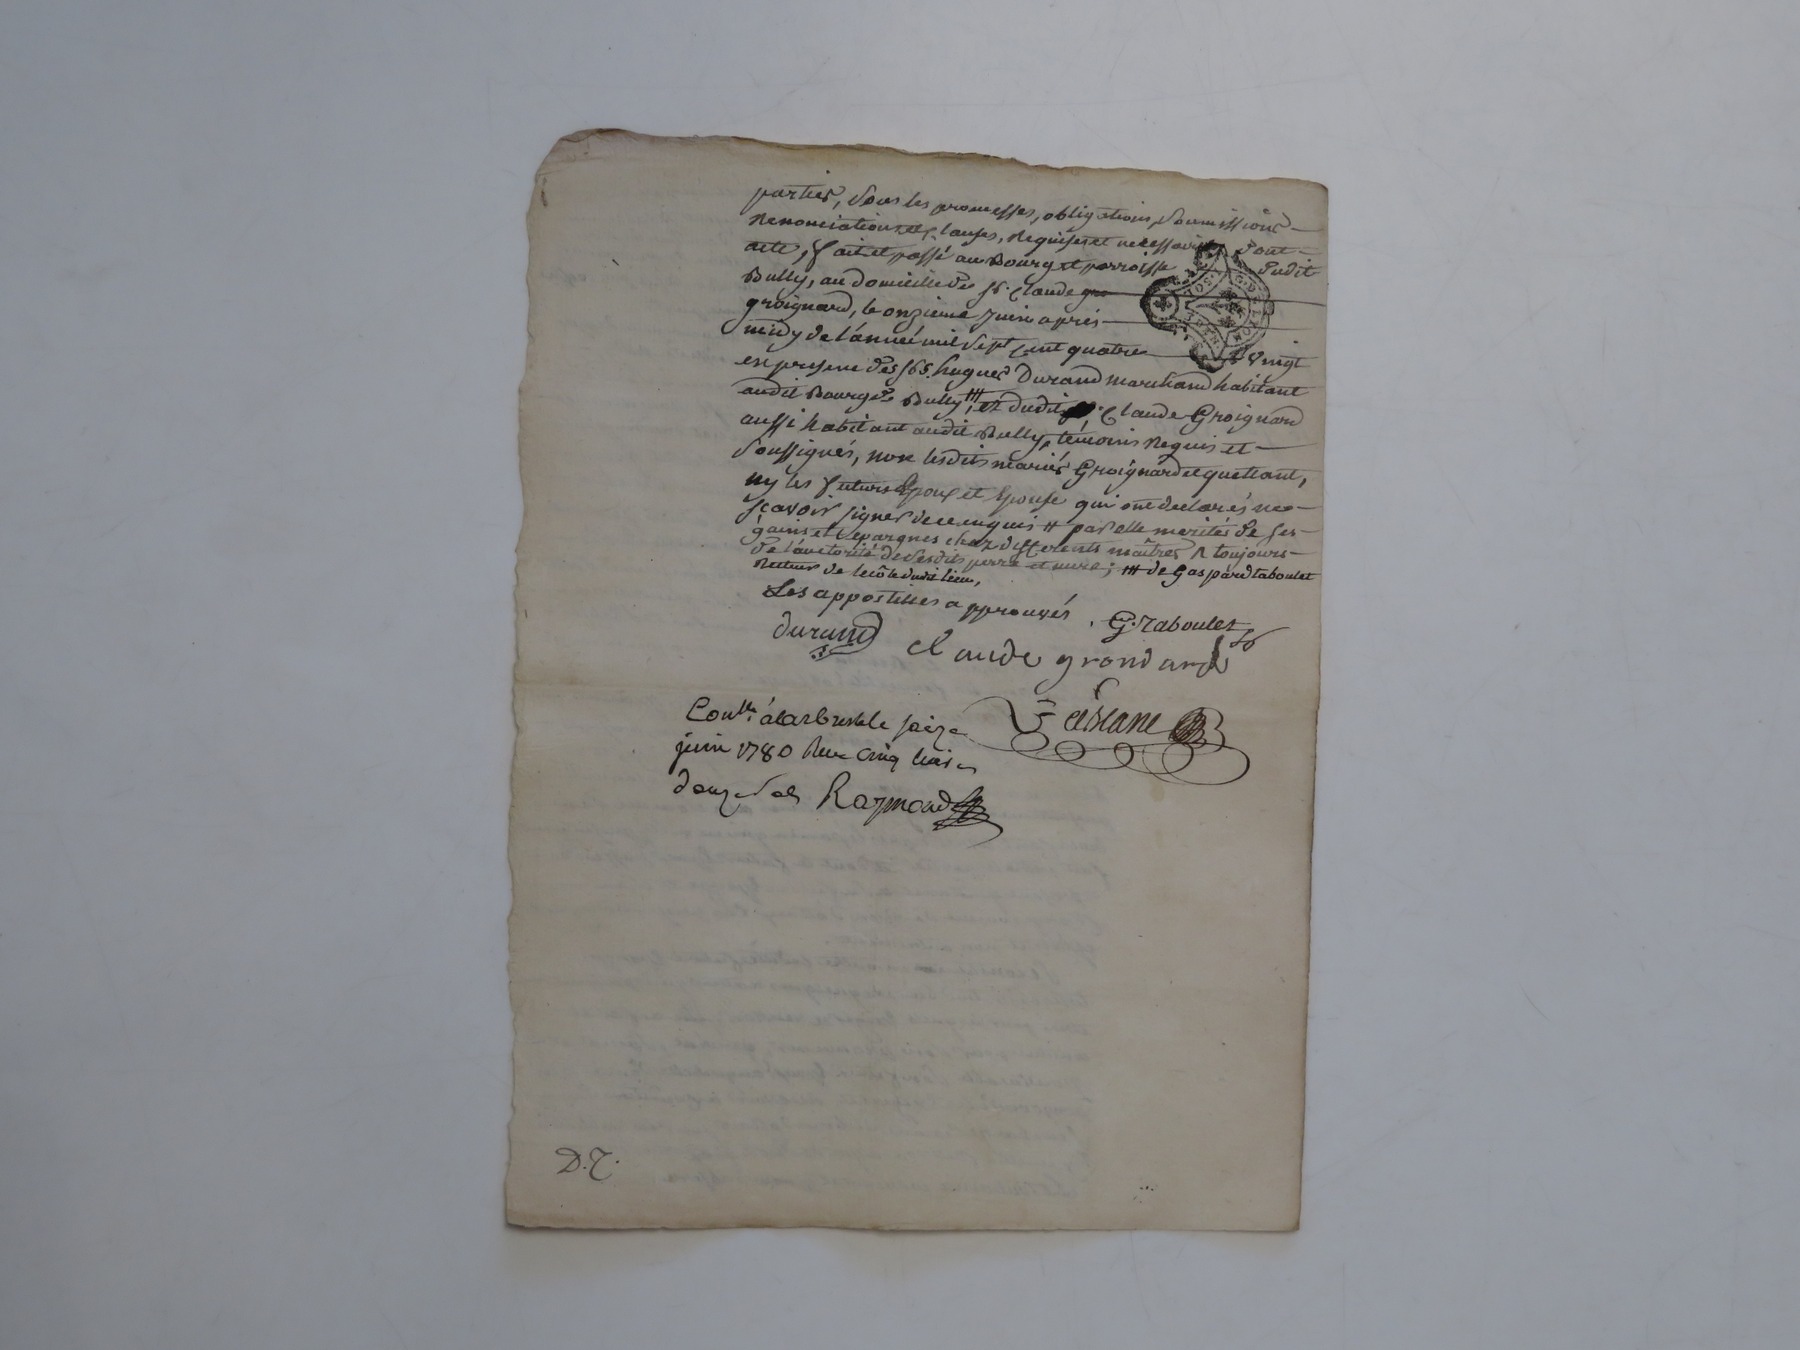 parties, sous les promesses, obligations, soumissions
Renonciations et clauses, Requises et necessaires Dont
acte, fait et passé au Bourg et parroisse dudit
Bully, au domicile de sr. Claude gro
groignard, le onzieme Juin après
midy de l'année mil sept cent quatre Vingt
en presence des srs. hugues Durand marchand habitant
audit Bourg de Bully, ### et dudit sr. Claude Groignard
aussi habitant audit Bully, témoins Requis et
soussignés, non lesdits mariés Groignard et quettant,
ny les futurs Epoux et Epouse qui ont declarés ne
sçavoir signer de ce enquis # par elle merités de ses
gains et Epargnes chez differents maîtres & toujours
de l'autorité de sesdits perre et mere; ### de Gaspard taboulet
Recteur de l'ecôle dudit lieu,
Les appostilles approuvés. G. Taboulet
durand Claude gronard
Conllé. à larbresle le seize
juin 1780 Reçu cinq livres
douze sols Raymond
D.T.